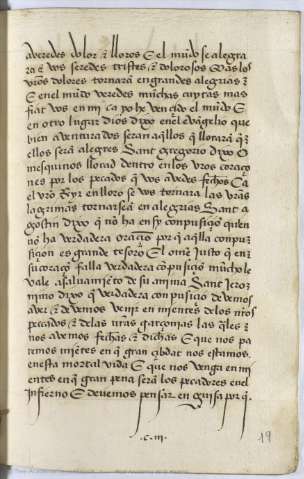 averedes dolor & lloros E el mũdo se alegra
ra & vos seredes tristes & dolorosos Mas los
vr̃os dolores tornarã en grandes alegrias &
E en el mũdo veredes muchas cuytas mas
fiat vos en mi ca yo he vencido el mũdo E
en otro lugar dios dixo en el evãgelio que
bien aventurados seran aq̃llos q̃ llorarã q̃
ellos serã alegres Sant gregorio dixo O
mesquinos llorad dentro en los vr̃os coraço
nes por los pecados q̃ vos avedes fechos Ca
el vr̃o Ryr en lloro se vos tornara las vr̃as
lagrimas tornarseã en alegrias Sant a
gostin dixo q̃ nõ ha en sy conpusiçiõ quien
nõ ha verdadera oraçiõ por q̃ aq̃lla conpu
siçion es grande tesoro E el om̃e Justo q̃ en
su coraçõ falla verdadera cõpusiçiõ mũcho le
vale a salvamiẽto de su anima Sant Jero
nimo dixo q̃ verdadera conpusiçiõ devemos
aver & devemos venir en mientes de los nr̃os
pecados & de las nr̃as las q̃les
nos avemos fechas & dichas E que nos pa
remos miẽtes en q̃ gran çibdat nos estamos
en esta mortal vida E que nos venga en mi
entes en q̃ gran pena serã los pecadores en el
infierno E devemos pensar en guisa por q̃
.c.iii.
19